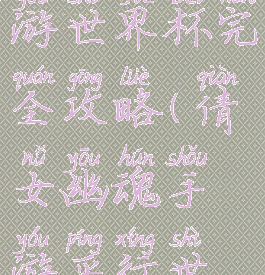 游世界杯完
quán gōng lüè qiàn
全攻略(倩
nǚ yōu hún shǒu
女幽魂手
yóu píng xíng shì
游平行世